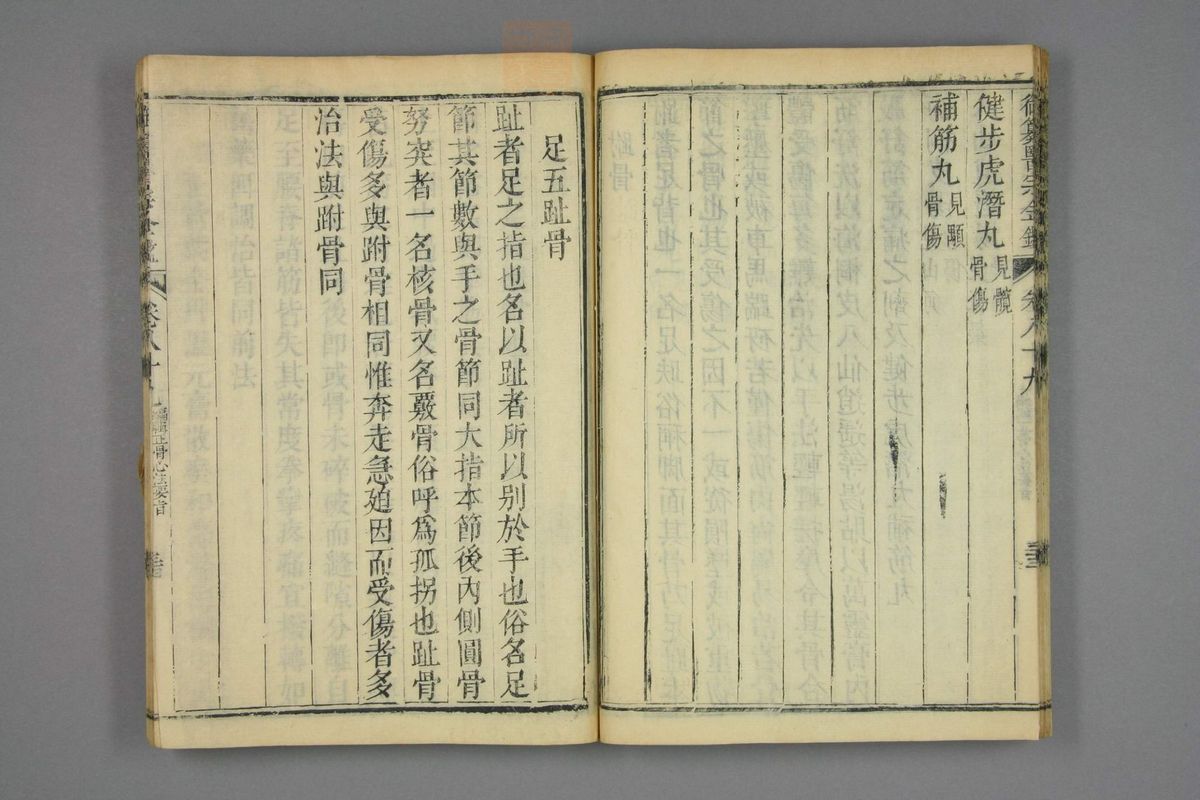 御纂醫宗金鑑 卷八十九
健步虎潛丸 見髖骨傷
補筋丸 見顒骨傷
足五趾骨
趾者足之指也名以趾者所以别於手也俗名足
節其節數與手之骨節同大指本節後內側圓骨
努突者一名核骨又名覈骨俗呼爲孤拐也趾骨
受傷多與跗骨相同惟奔走急廹因而受傷者多
治法與跗骨同
卷八十九 編輯正骨心法要旨